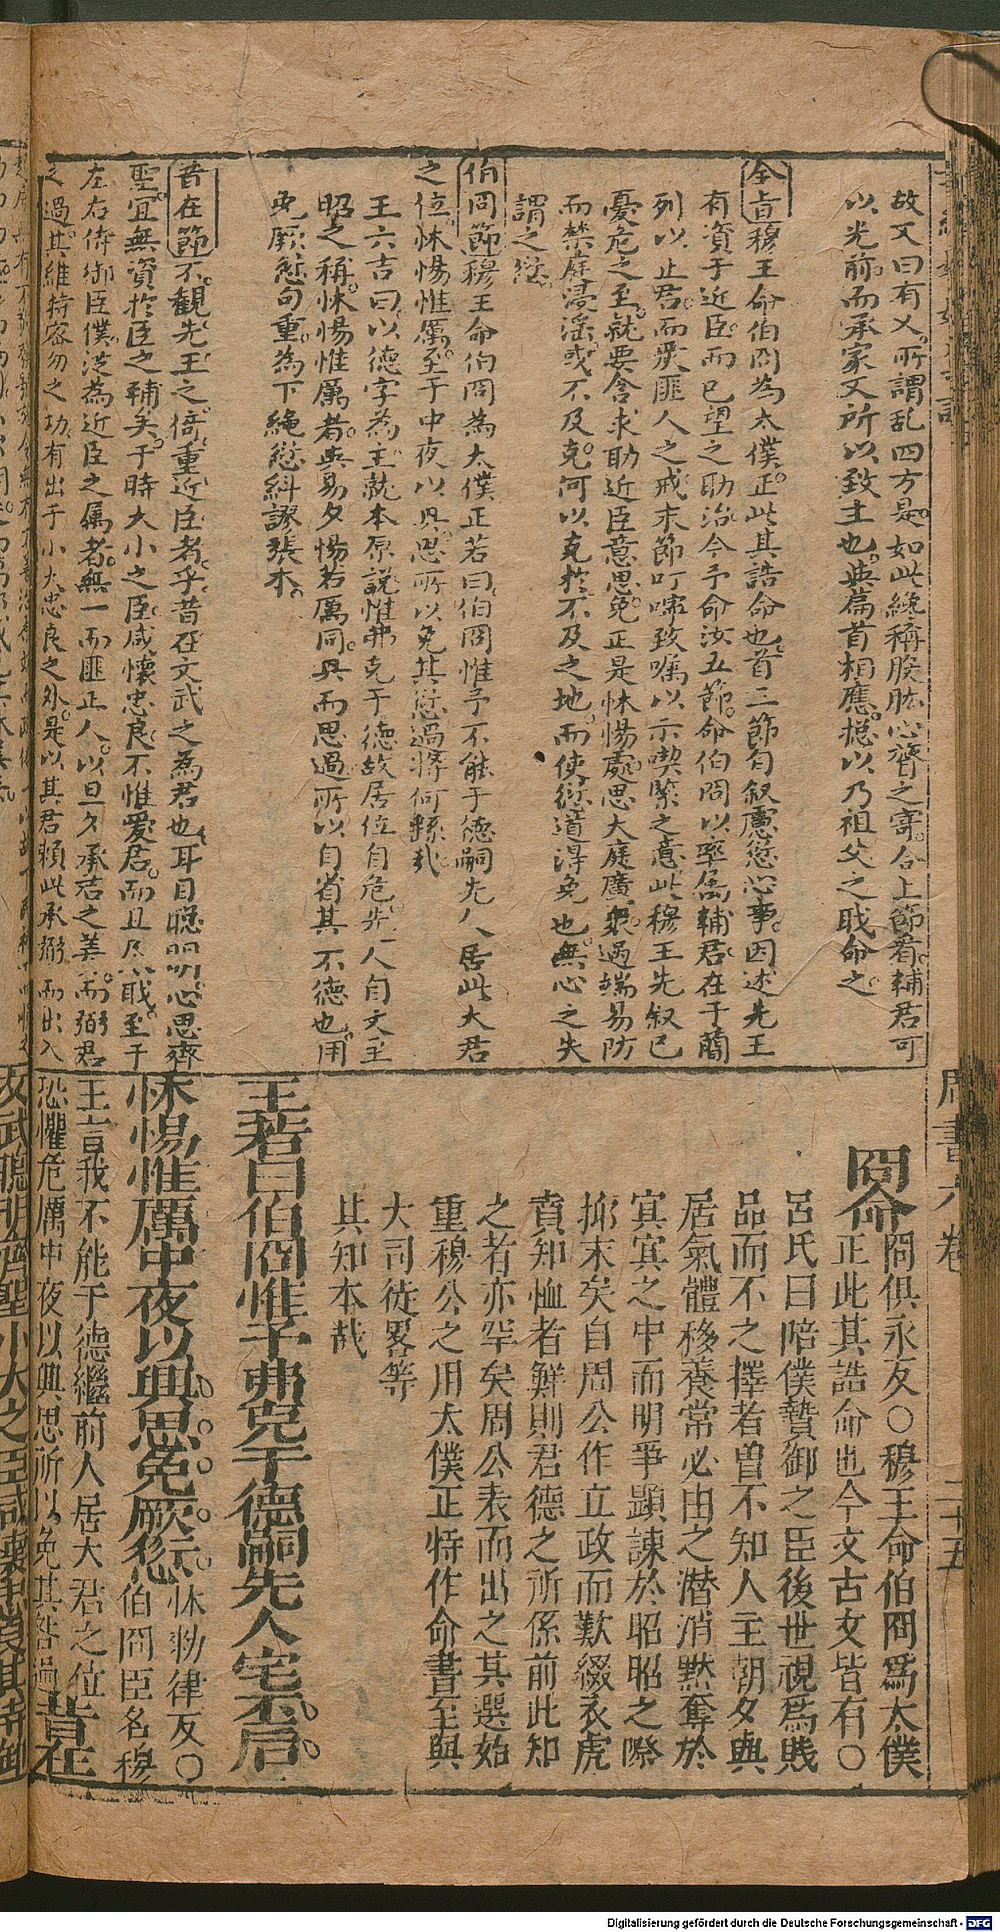 故又曰有乂所謂乱四方是如此總稱股肱心膂之寄合上節看輔君可
以光前而承家又所以致主也與篇首相應總以乃祖父之職命之
全旨穆王命伯冏為太僕正此其誥命也首二節自叙慮愆心事因述先王
有資于近臣而已望之助治今予命汝五節命伯冏以率属輔君在于簡
列以止君而戒匪人之戒末節叮嚀致嘱以示喫緊之意此穆王先叙已
憂危之至就要含求助近臣意思免正是怵惕處思大庭廣衆過端易防
而禁庭浸滛或不及克何以克於不及之地而使愆道淂免也無心之失
謂之愆
伯冏節穆王命伯冏為太僕正若曰伯冏惟予不能于德嗣先人居此大君
之位怵惕惟厲至于中夜以興思所以免其愆過將何繇哉
王六吉曰以德字為主就本原說惟弗克于德故居位自危先人自文王
昭之稱怵惕惟厲者與易夕惕若厲同興而思過所以自省其不德也用
免厥愆句重為下繩愆糾謬張本
昔在節不觀先王之倚重近臣者乎昔在文武之為君也耳目聰明心思齊
聖宜無資於臣之輔矣于時大小之臣咸懷忠良不惟愛君而且尽職至于
左右侍御臣僕泛為近臣之属者無一而匪正人以旦夕承君之美而弼君
之過其維持容勿之功有出于小大忠良之外是以其君頼此承弼而出入
冏命
冏俱永反○穆王命伯冏爲大僕
正此其誥命也今文古文皆有○
呂氏曰陪僕暬御之臣後世視爲賎
品而不之擇者曽不知人主朝夕與
居氣體移養常必由之潜消默奪於
冥冥之中而明爭顕諫於昭昭之際
抑末矣自周公作立政而歎綴衣虎
賁知恤者鮮則君德之所係前此知
之者亦罕矣周公表而出之其選始
重穆公之用太僕正特作命書至與
大司徒畧等
其知本哉
王若曰伯冏惟予弗克于德嗣先人宅丕后
怵惕惟厲中夜以興思免厥愆
怵勑律反○
伯冏臣名穆
王言我不能于德繼前人居大君之位
恐懼危厲中夜以興思所以免其咎過
昔在
文武聰明齊聖小大之臣咸懷忠良其侍御
周書六卷
二十五
Digitalisierung gefördert durch die Deutsche Forschungsgemeinschaft - DFG